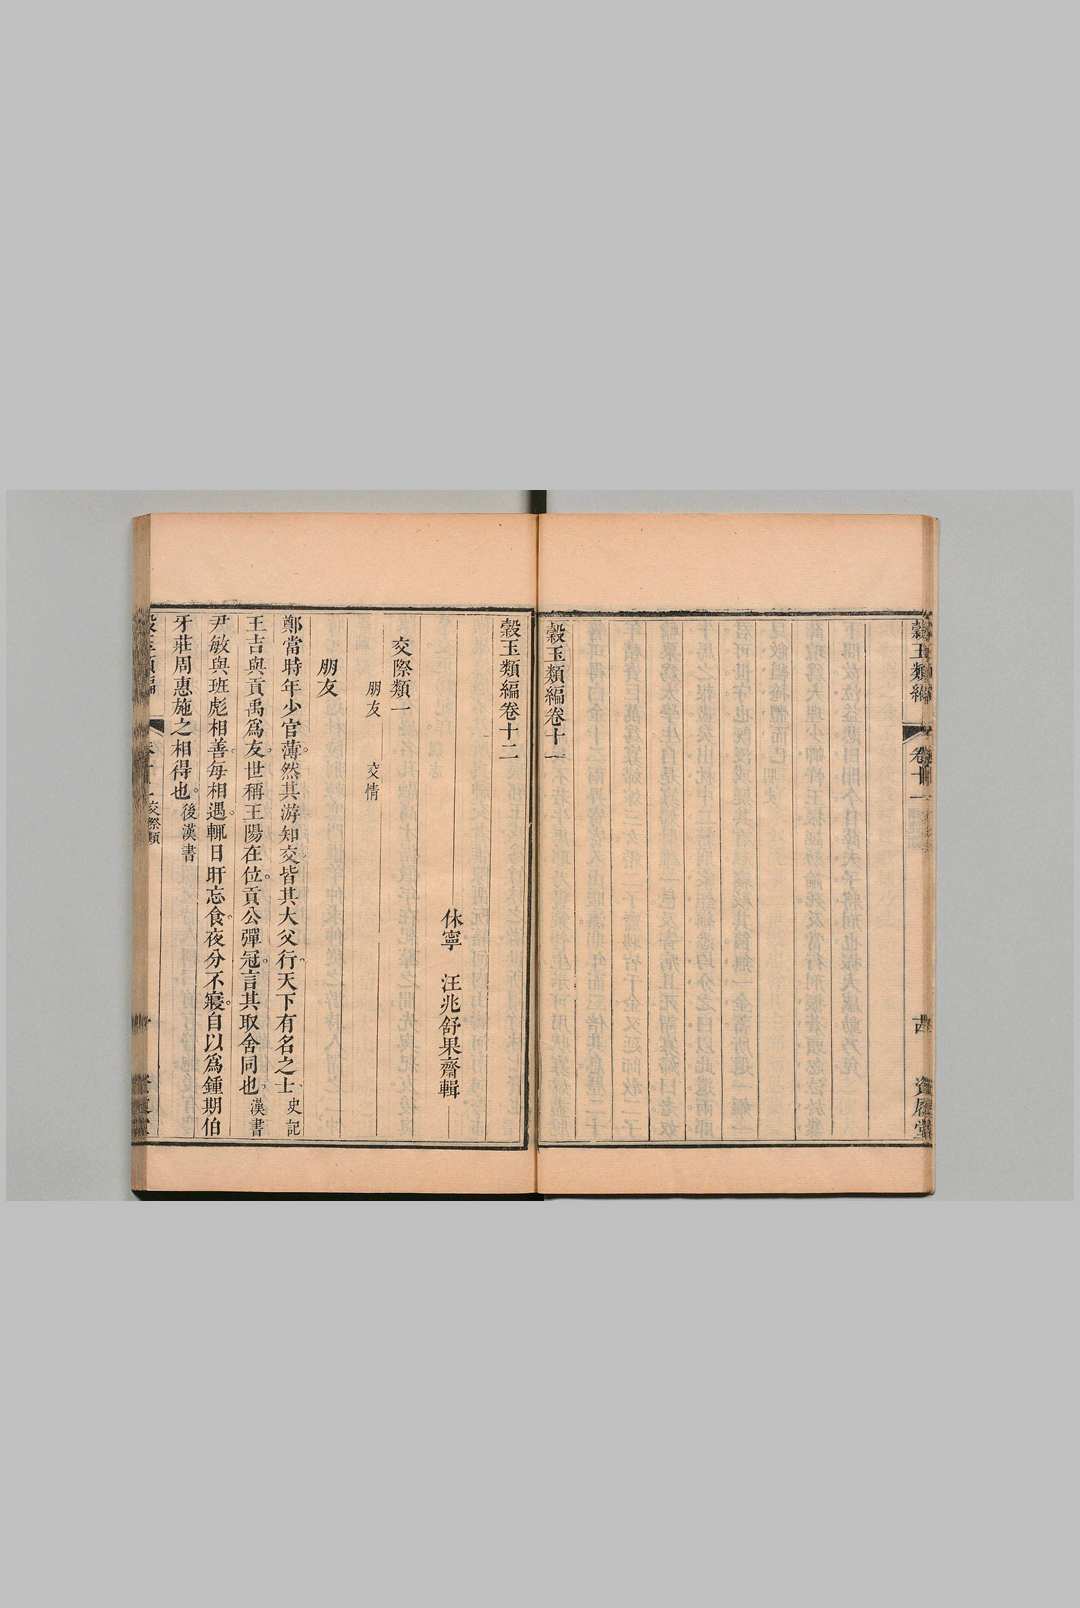 穀玉類編
卷十一
資履堂
穀玉類編卷十一
穀玉類編卷十二
休寧　汪兆舒果齋輯
交際類一
朋友　交情
朋友
鄭當時年少官薄。然其游知交。皆其大父行。天下有名之士。史記
王吉與貢禹爲友。世稱王陽在位。貢公彈冠。言其取舍同也。漢書
尹敏與班彪相善。每相遇。輒日旰忘食。夜分不寢。自以爲鍾期伯
牙莊周惠施之相得也。後漢書
交際類